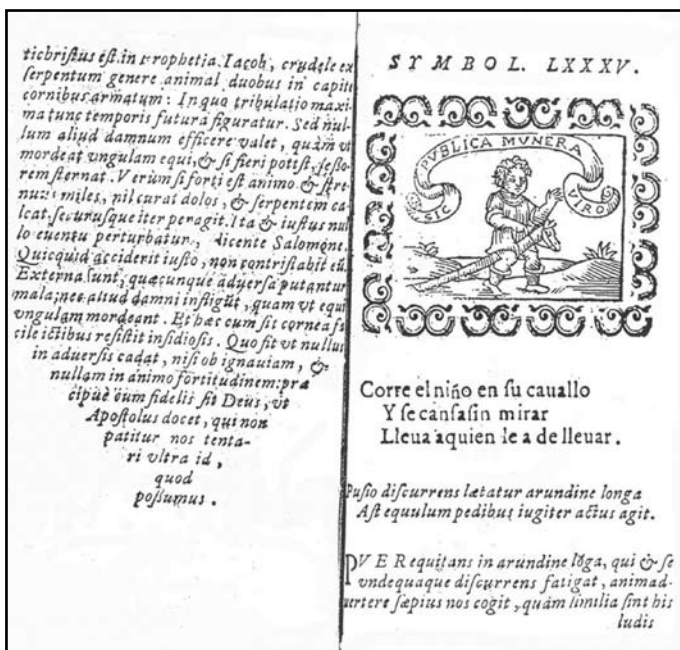 tichriſtus eſt. in prophetia. Iacob, crudele ex
ſerpentum genere animal duobus in capite
cornibus armatum: In quo tribulatio maxi-
ma tunc temporis futura figuratur. Sed nul-
lum aliud damnum efficere valet, quàm vt
mordeat vngulam equi, & ſi fieri poteſt, ſeſſo-
rem ſternat. Verùm ſi forti eſt animo & ſtre-
nuus miles, nil curat dolos, & ſerpentem cal-
cat, ſecuruſque iter peragit. Ita & iuſtus nul-
lo euentu perturbatur, dicente Salomone.
Quicquid acciderit iuſto, non contriſtabit eũ.
Externa ſunt, quæcunque aduerſa putantur
mala; nec aliud damni infligũt, quam vt equi
vngulam mordeant. Et hæc cum ſit cornea fa
cile ictibus reſiſtit inſidioſis. Quo fit vt nullus
in aduerſis cadat, niſi ob ignauiam, &
nullam in animo fortitudinem: præ
cipuè cum fidelis ſit Deus, vt
Apoſtolus docet, qui non
patitur nos tenta-
ri vltra id,
quod
poſſumus.
SYMBOL. LXXXV.
SIC PVBLICA MVNERA VIROS
Corre el niño en ſu cauallo
Y ſe canſa ſin mirar
Lleua a quien le a de lleuar.
Puſio diſcurrens lætatur arundine longa
Aſt equulum pedibus iugiter actus agit.
PVER equitans in arundine lõga, qui & ſe
vndequaque diſcurrens fatigat, animad-
uertere ſæpius nos cogit, quàm ſimilia ſint his
ludis